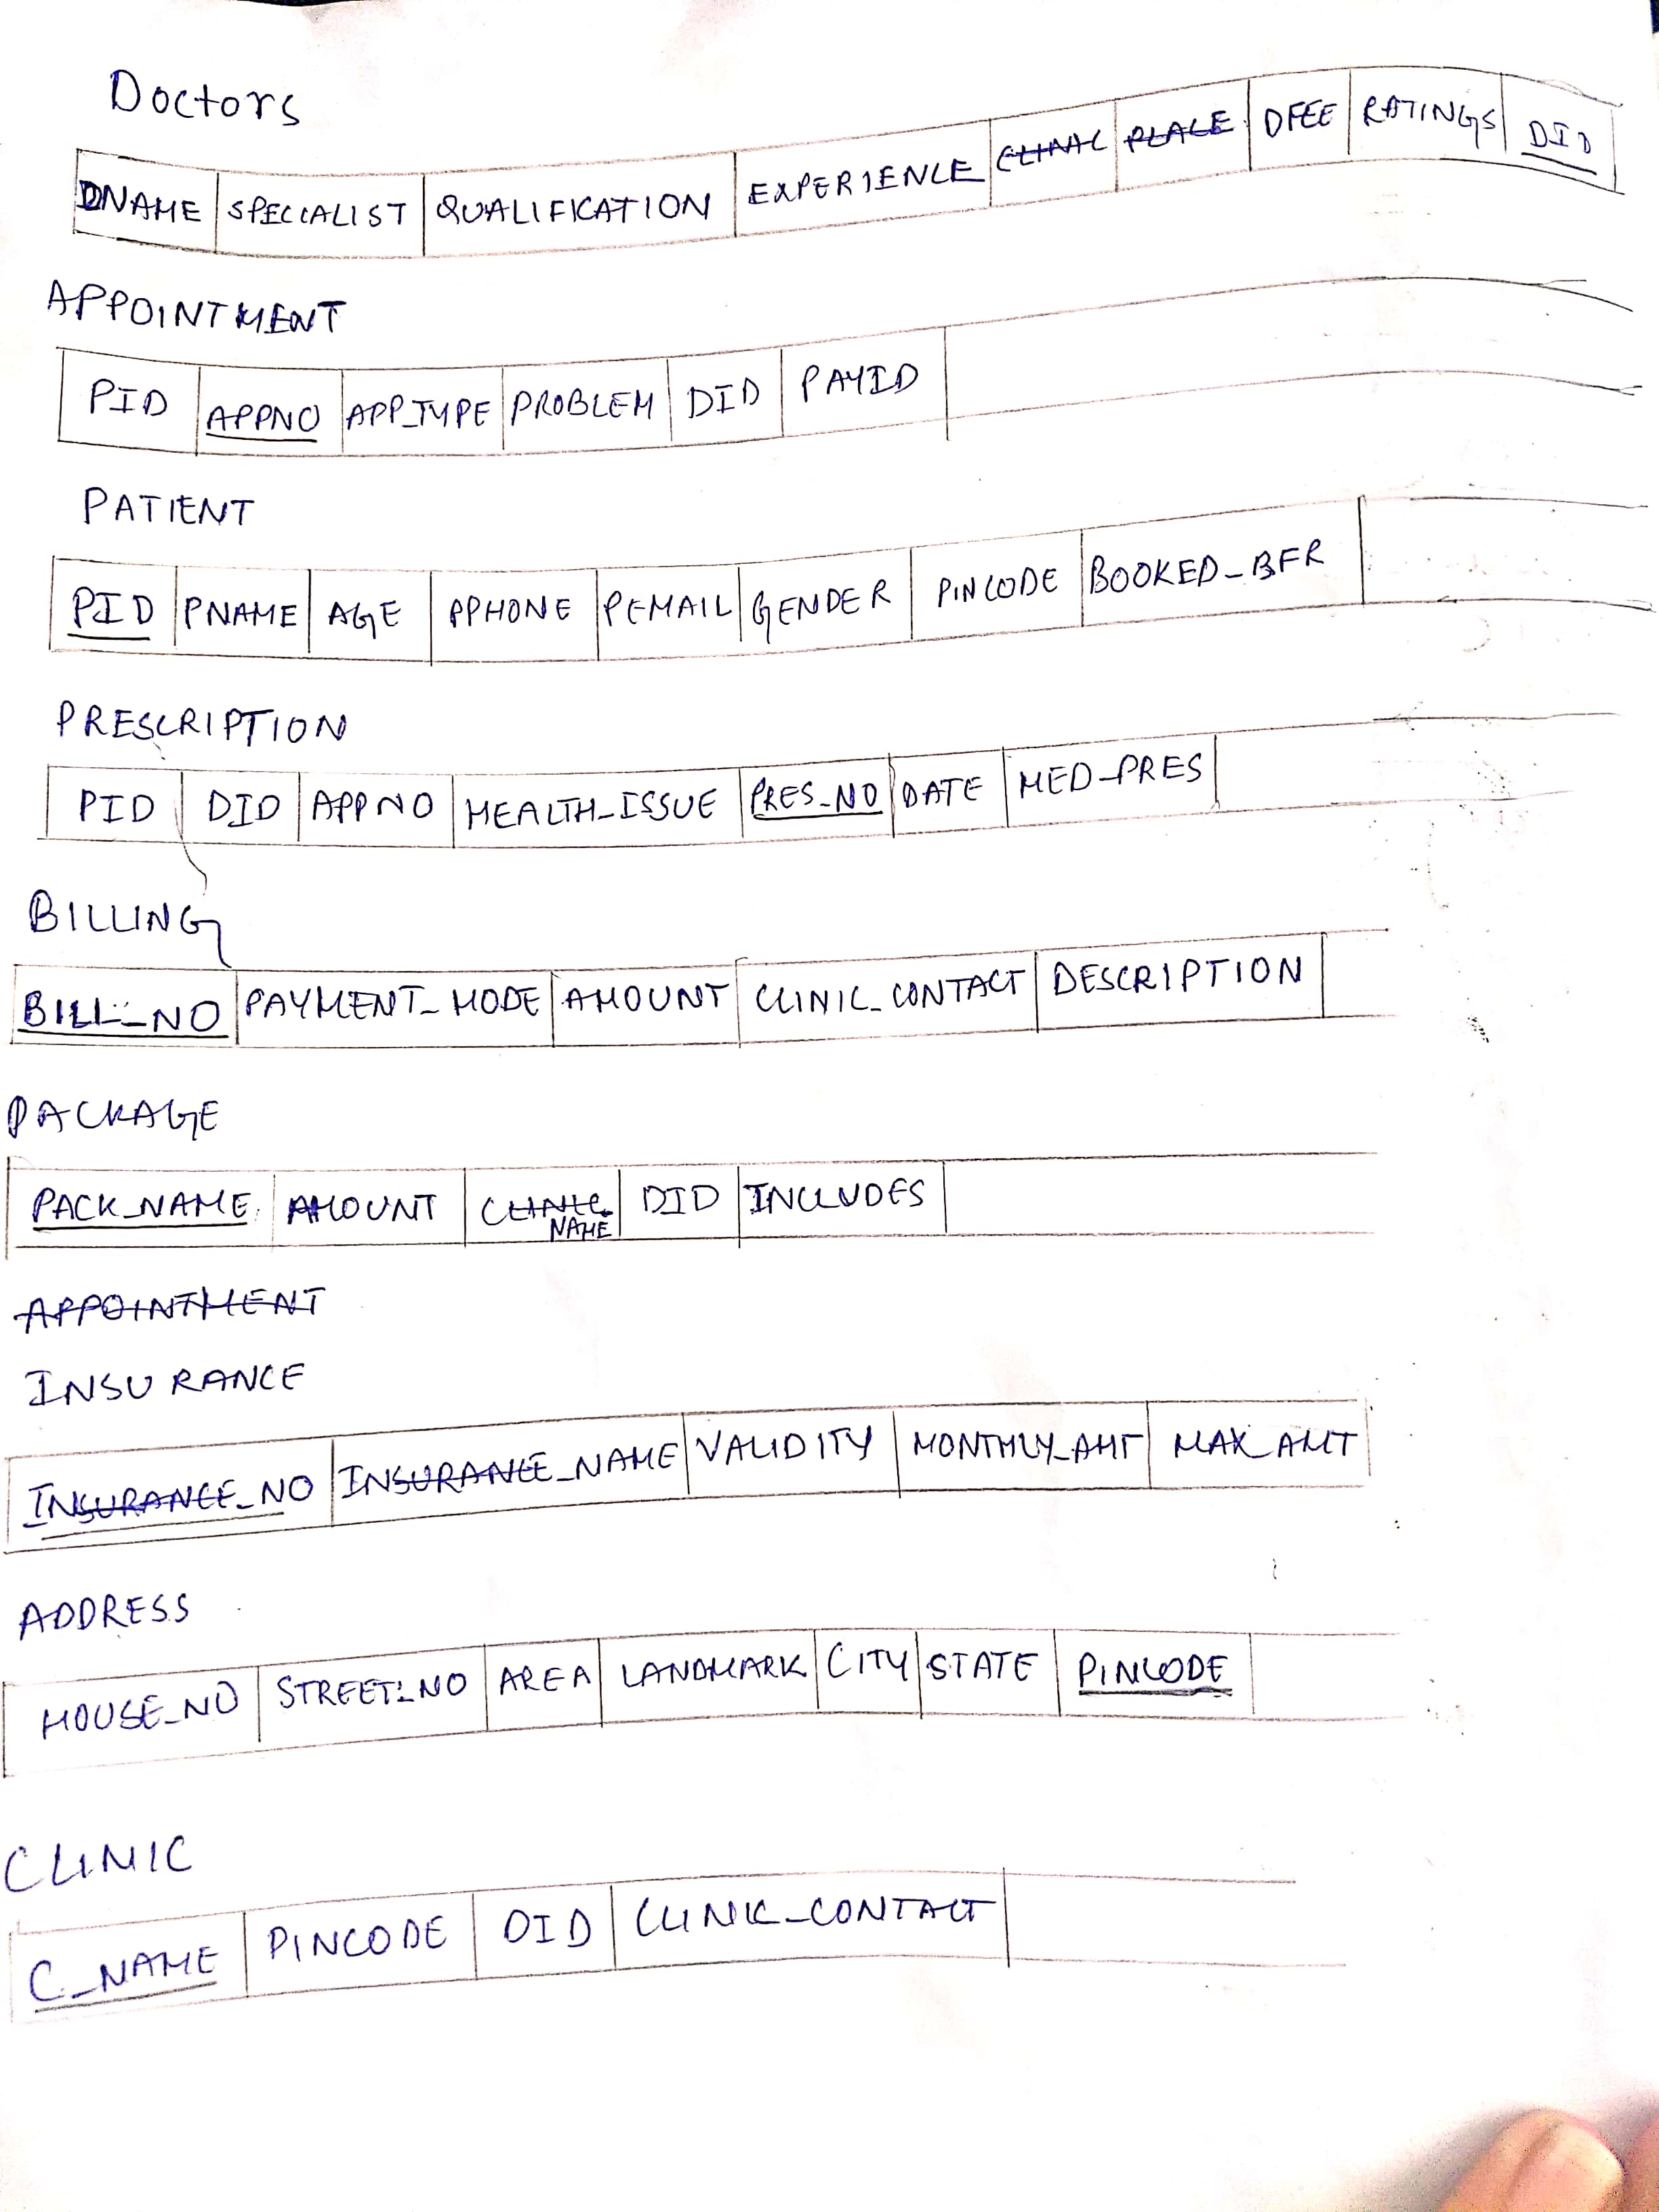 Doctors
DNAME SPECIALIST QUALIFICATION EXPERIENCE CLINIC PLACE DFEE RATINGS DID
APPOINTMENT
PID APPNO APP_TYPE PROBLEM DID PAYID
PATIENT
PID PNAME AGE PPHONE PEMAIL GENDER PINCODE BOOKED_BFR
PRESCRIPTION
PID DID APPNO HEALTH_ISSUE PRES_NO DATE MED_PRES
BILLING
BILL_NO PAYMENT_MODE AMOUNT CLINIC_CONTACT DESCRIPTION
PACKAGE
PACK_NAME AMOUNT CLINIC NAME DID INCLUDES
APPOINTMENT
INSURANCE
INSURANCE_NO INSURANCE_NAME VALIDITY MONTHLY_AMT MAX_AMT
ADDRESS
HOUSE_NO STREET_NO AREA LANDMARK CITY STATE PINCODE
CLINIC
C_NAME PINCODE DID CLINIC_CONTACT